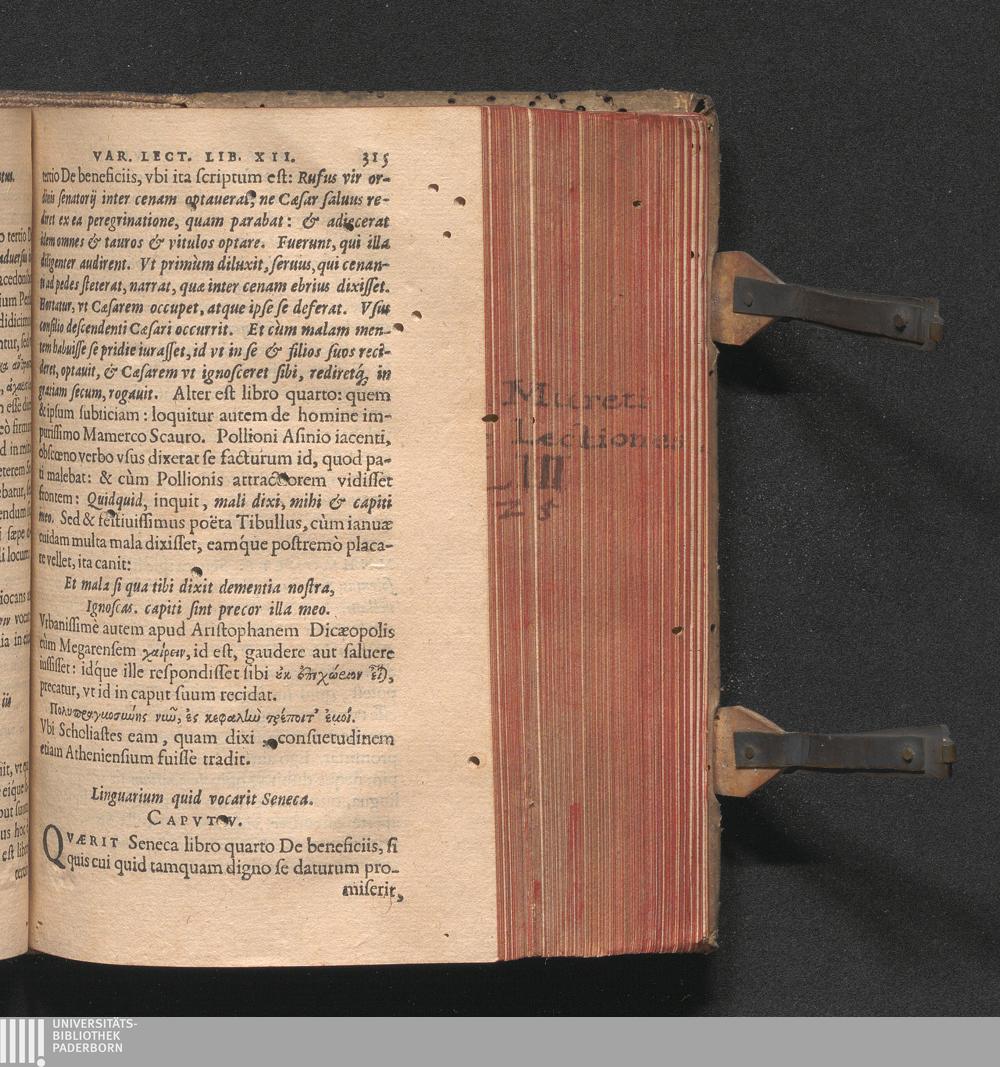 VAR. LECT. LIB. XII. 315
tertio De beneficiis, vbi ita scriptum est: Rufus vir or-
dinis senatorij inter cenam optauerat, ne Cæsar saluus re-
diret ex ea peregrinatione, quam parabat: & adiecerat
idem omnes & tauros & vitulos optare. Fuerunt, qui illa
diligenter audirent. Vt primùm diluxit, seruus, qui cenan-
ti ad pedes steterat, narrat, quæ inter cenam ebrius dixisset.
Hortatur, vt Cæsarem occupet, atque ipse se deferat. Vsus
consilio descendenti Cæsari occurrit. Et cùm malam men-
tem habuisse se pridie iurasset, id vt in se & filios suos reci-
deret, optauit, & Cæsarem vt ignosceret sibi, rediretq́, in
gratiam secum, rogauit. Alter est libro quarto: quem
& ipsum subticiam: loquitur autem de homine im-
purissimo Mamerco Scauro. Pollioni Asinio iacenti,
obscœno verbo vsus dixerat se facturum id, quod pa-
ti malebat: & cùm Pollionis attractiorem vidisset
frontem: Quidquid, inquit, mali dixi, mihi & capiti
meo. Sed & festiuissimus poëta Tibullus, cùm ianuæ
cuidam multa mala dixisset, eamq́ue postremò placa-
re vellet, ita canit:
Et mala si qua tibi dixit dementia nostra,
Ignoscas. capiti sint precor illa meo.
Vrbanissimè autem apud Aristophanem Dicæopolis
cùm Megarensem χαίρειν, id est, gaudere aut saluere
iussisset: idq́ue ille respondisset sibi ἐκ ἐπιχώριον
precatur, vt id in caput suum recidat.
Πολυπραγμοσιώης νιῶ, ἐς κεφαλιὼ τρέποιτ' ἐμοί.
Vbi Scholiastes eam, quam dixi, consuetudinem
etiam Atheniensium fuisse tradit.
Linguarium quid vocarit Seneca.
CAPVT V.
QVÆRIT Seneca libro quarto De beneficiis, si
quis cui quid tamquam digno se daturum pro-
miserit,
Mureti
Lectiones
III
Z 5
UNIVERSITÄTS-
BIBLIOTHEK
PADERBORN